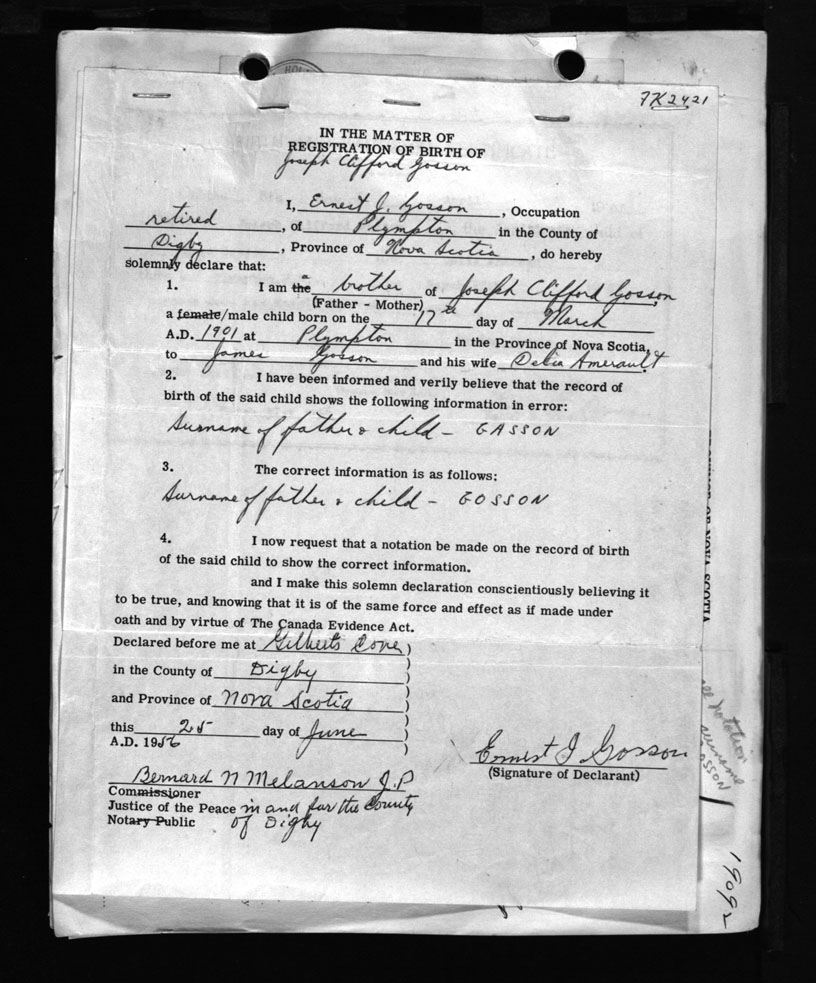 7K2421
IN THE MATTER OF
REGISTRATION OF BIRTH OF
Joseph Clifford Gosson
I, Ernest J. Gosson, Occupation
retired, of Plympton in the County of
Digby, Province of Nova Scotia, do hereby
solemnly declare that:
1. I am the a brother of Joseph Clifford Gosson
(Father - Mother)
a female/male child born on the 17th day of March
A.D. 1901 at Plympton in the Province of Nova Scotia,
to James Gosson and his wife Delia Amerault.
2. I have been informed and verily believe that the record of
birth of the said child shows the following information in error:
Surname of father & child - GASSON
3. The correct information is as follows:
Surname of father & child - GOSSON
4. I now request that a notation be made on the record of birth
of the said child to show the correct information.
and I make this solemn declaration conscientiously believing it
to be true, and knowing that it is of the same force and effect as if made under
oath and by virtue of The Canada Evidence Act.
Declared before me at Gilberts Cove )
in the County of Digby )
and Province of Nova Scotia )
this 25 day of June )
A.D. 1956 )
Ernest J Gosson
(Signature of Declarant)
Bernard N Melanson J.P
Commissioner
Justice of the Peace in and for the County
Notary Public of Digby
OF NOVA SCOTIA
notation
surname
GOSSON
19092